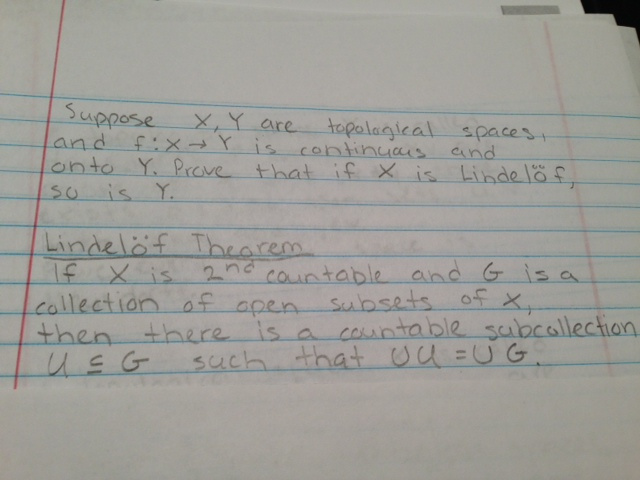 Suppose X, Y are topological spaces,
and f: X → Y is continuous and
onto Y. Prove that if X is Lindelöf,
so is Y.
Lindelöf Theorem
If X is 2nd countable and G is a
collection of open subsets of X,
then there is a countable subcollection
U ⊆ G such that ∪U = ∪G.